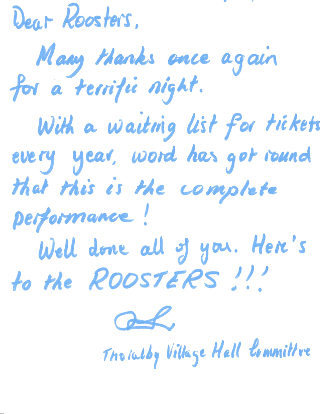 Dear Roosters,
Many thanks once again
for a terrific night.
With a waiting list for tickets
every year, word has got round
that this is the complete
performance!
Well done all of you. Here's
to the ROOSTERS!!!
Thoralby Village Hall Committee